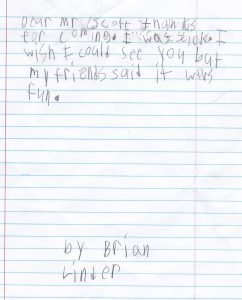 Dear Mr. Scott thanks
for coming. I was sick. I
wish I could see you but
my friends said it was
fun.
by Brian
Linder